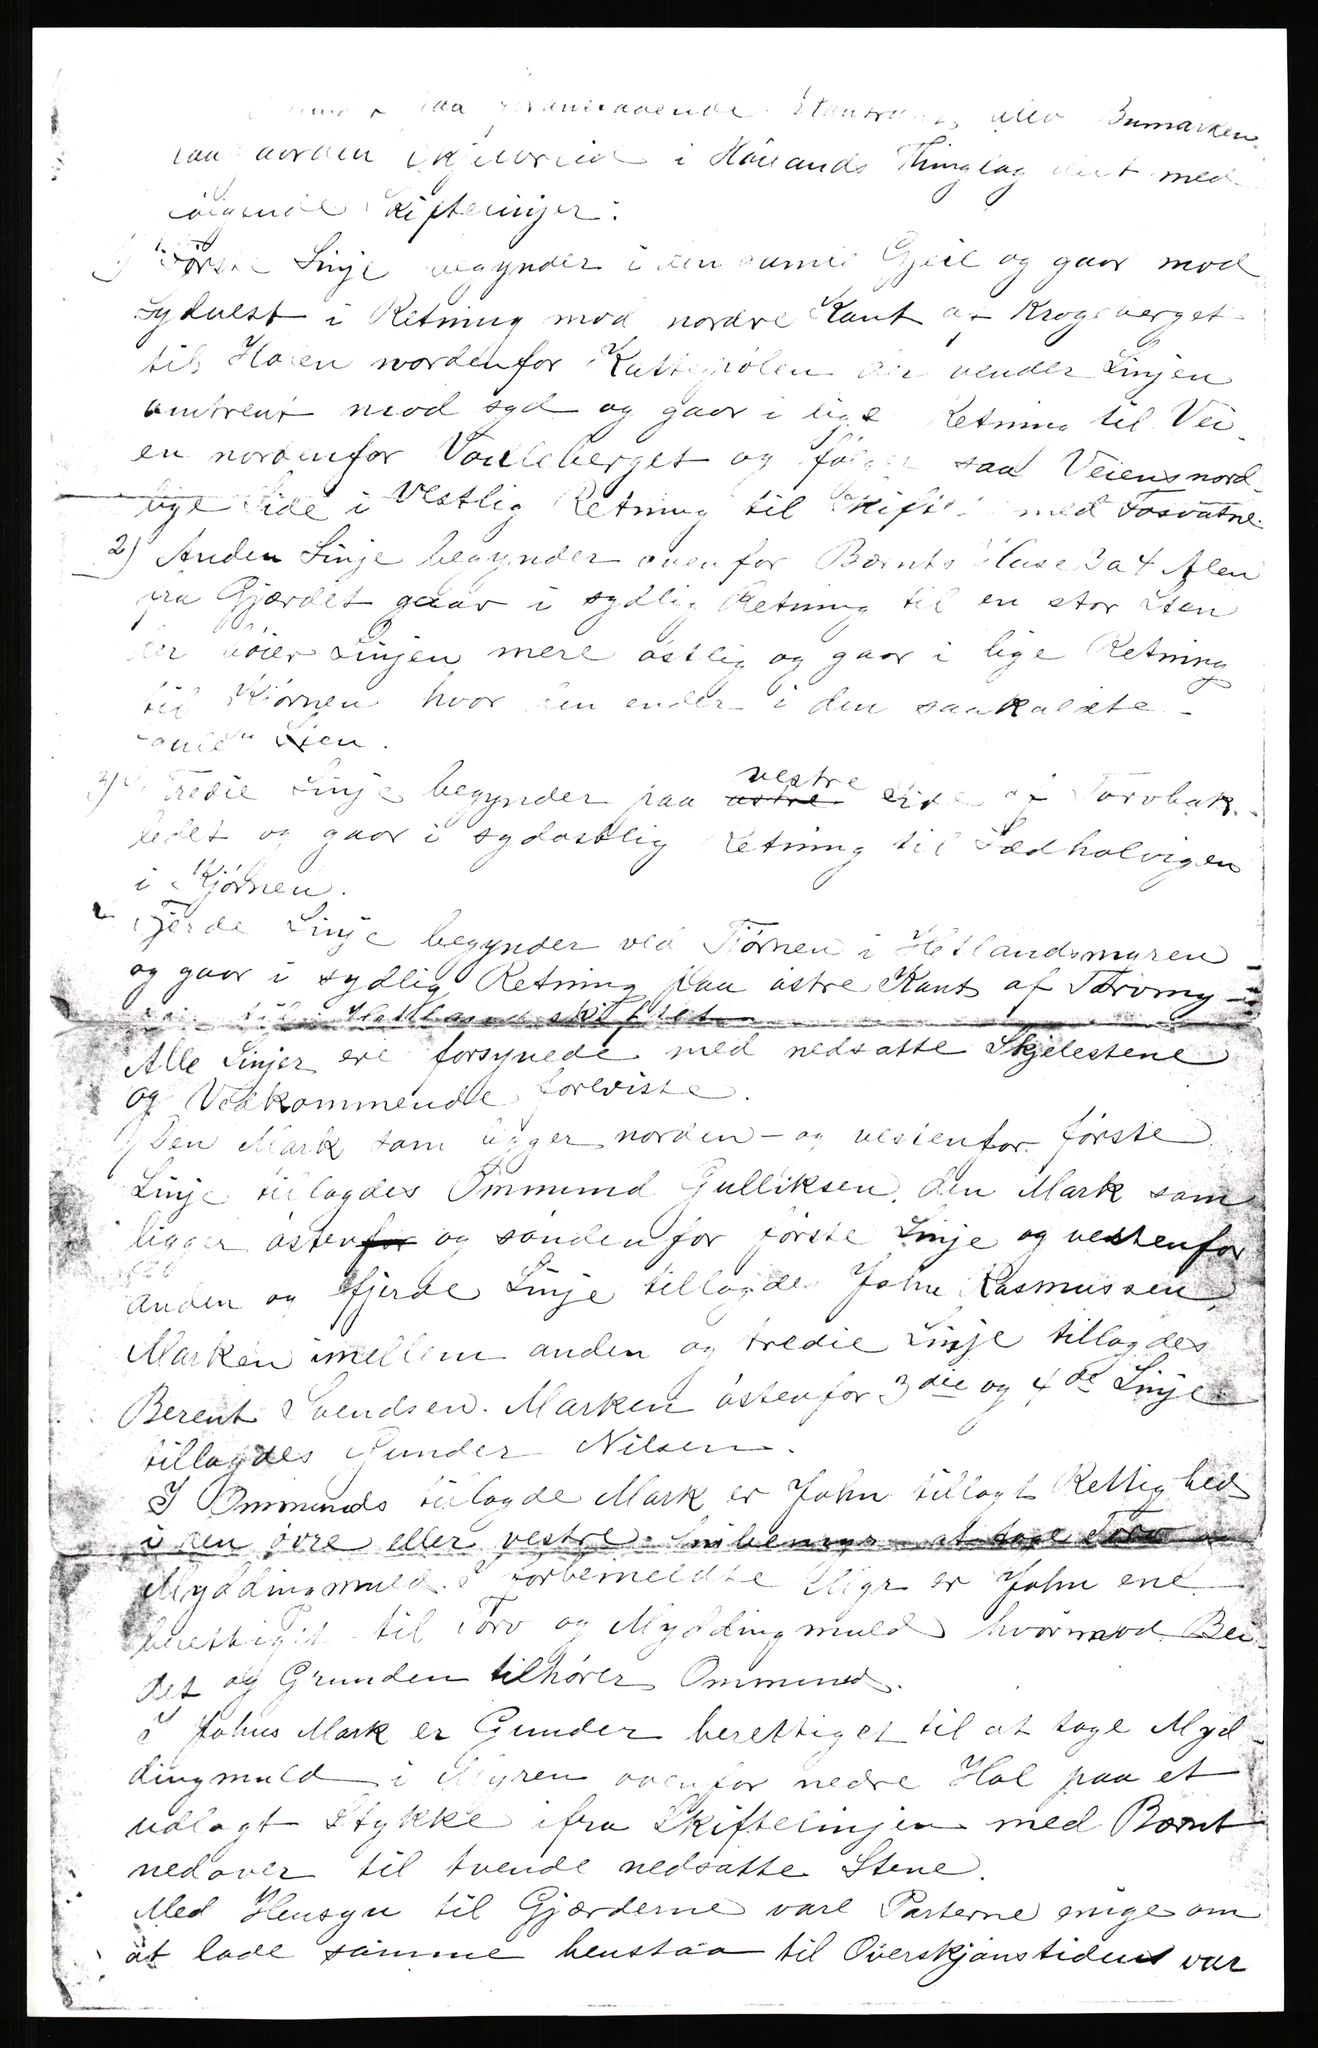 Bumarken
i Hölands Thinglag med
Skiftelinjer:
1) Første Linje begynder i den gamle Gjeil og gaar mod
Sydvest i Retning mod nordre Kant af Krogeberget
til Holen nordenfor Kattepølen der vender Linjen
omtrent mod syd og gaar i lige Retning til Vei-
en nordenfor Vouleberget og følger saa Veiens nord-
lige Side i Vestlig Retning til Skifte med Fosvatne.
2) Anden Linje begynder ovenfor Bærnts Huse 3 a 4 Alen
fra Gjærdet gaar i sydlig Retning til en stor Sten
der bøier Linjen mere østlig og gaar i lige Retning
til Kjørnen hvor den ender i den saakaldte
Lien.
3) Tredie Linje begynder paa østre vestre Side af Torvbak-
ledet og gaar i sydøstlig Retning til Sædholvigen
i Kjørnen.
Fjerde Linje begynder ved Tjørnen i Hetlandsmyren
og gaar i sydlig Retning paa østre Kant af Torvmy-
ren til Hetlandskiftet
Alle Linjer ere forsynede med nedsatte Skjelestene
og Vedkommende foreviste.
Den Mark som ligger norden- og vestenfor første
Linje tillagdes Ommund Gulliksen, den Mark som
ligger østenfor og søndenfor første Linje og vestenfor
anden og fjerde Linje tillagdes John Rasmussen,
Marken imellem anden og tredie Linje tillagdes
Berent Svendsen. Marken østenfor 3die og 4de Linje
tillagdes Gunder Nilsen.
I Ommunds tillagde Mark er John tillagt Rettighed
i den øvre eller vestre at tage Torv og
Myddingmuld. I forbemeldte Myr er John ene
berettiget til Torv og Myddingmuld hvorimod Bei-
det og Grunden tilhører Ommund.
I Johns Mark er Gunder berettiget til at tage Myd-
dingmuld i Myren ovenfor nedre Hol paa et
udlagt Stykke ifra Skiftelinjen med Bærnt
nedover til tvende nedsatte Stene.
Med Hensyn til Gjærderne vare Parterne enige om
at lade samme henstaa til Overskjønstiden var